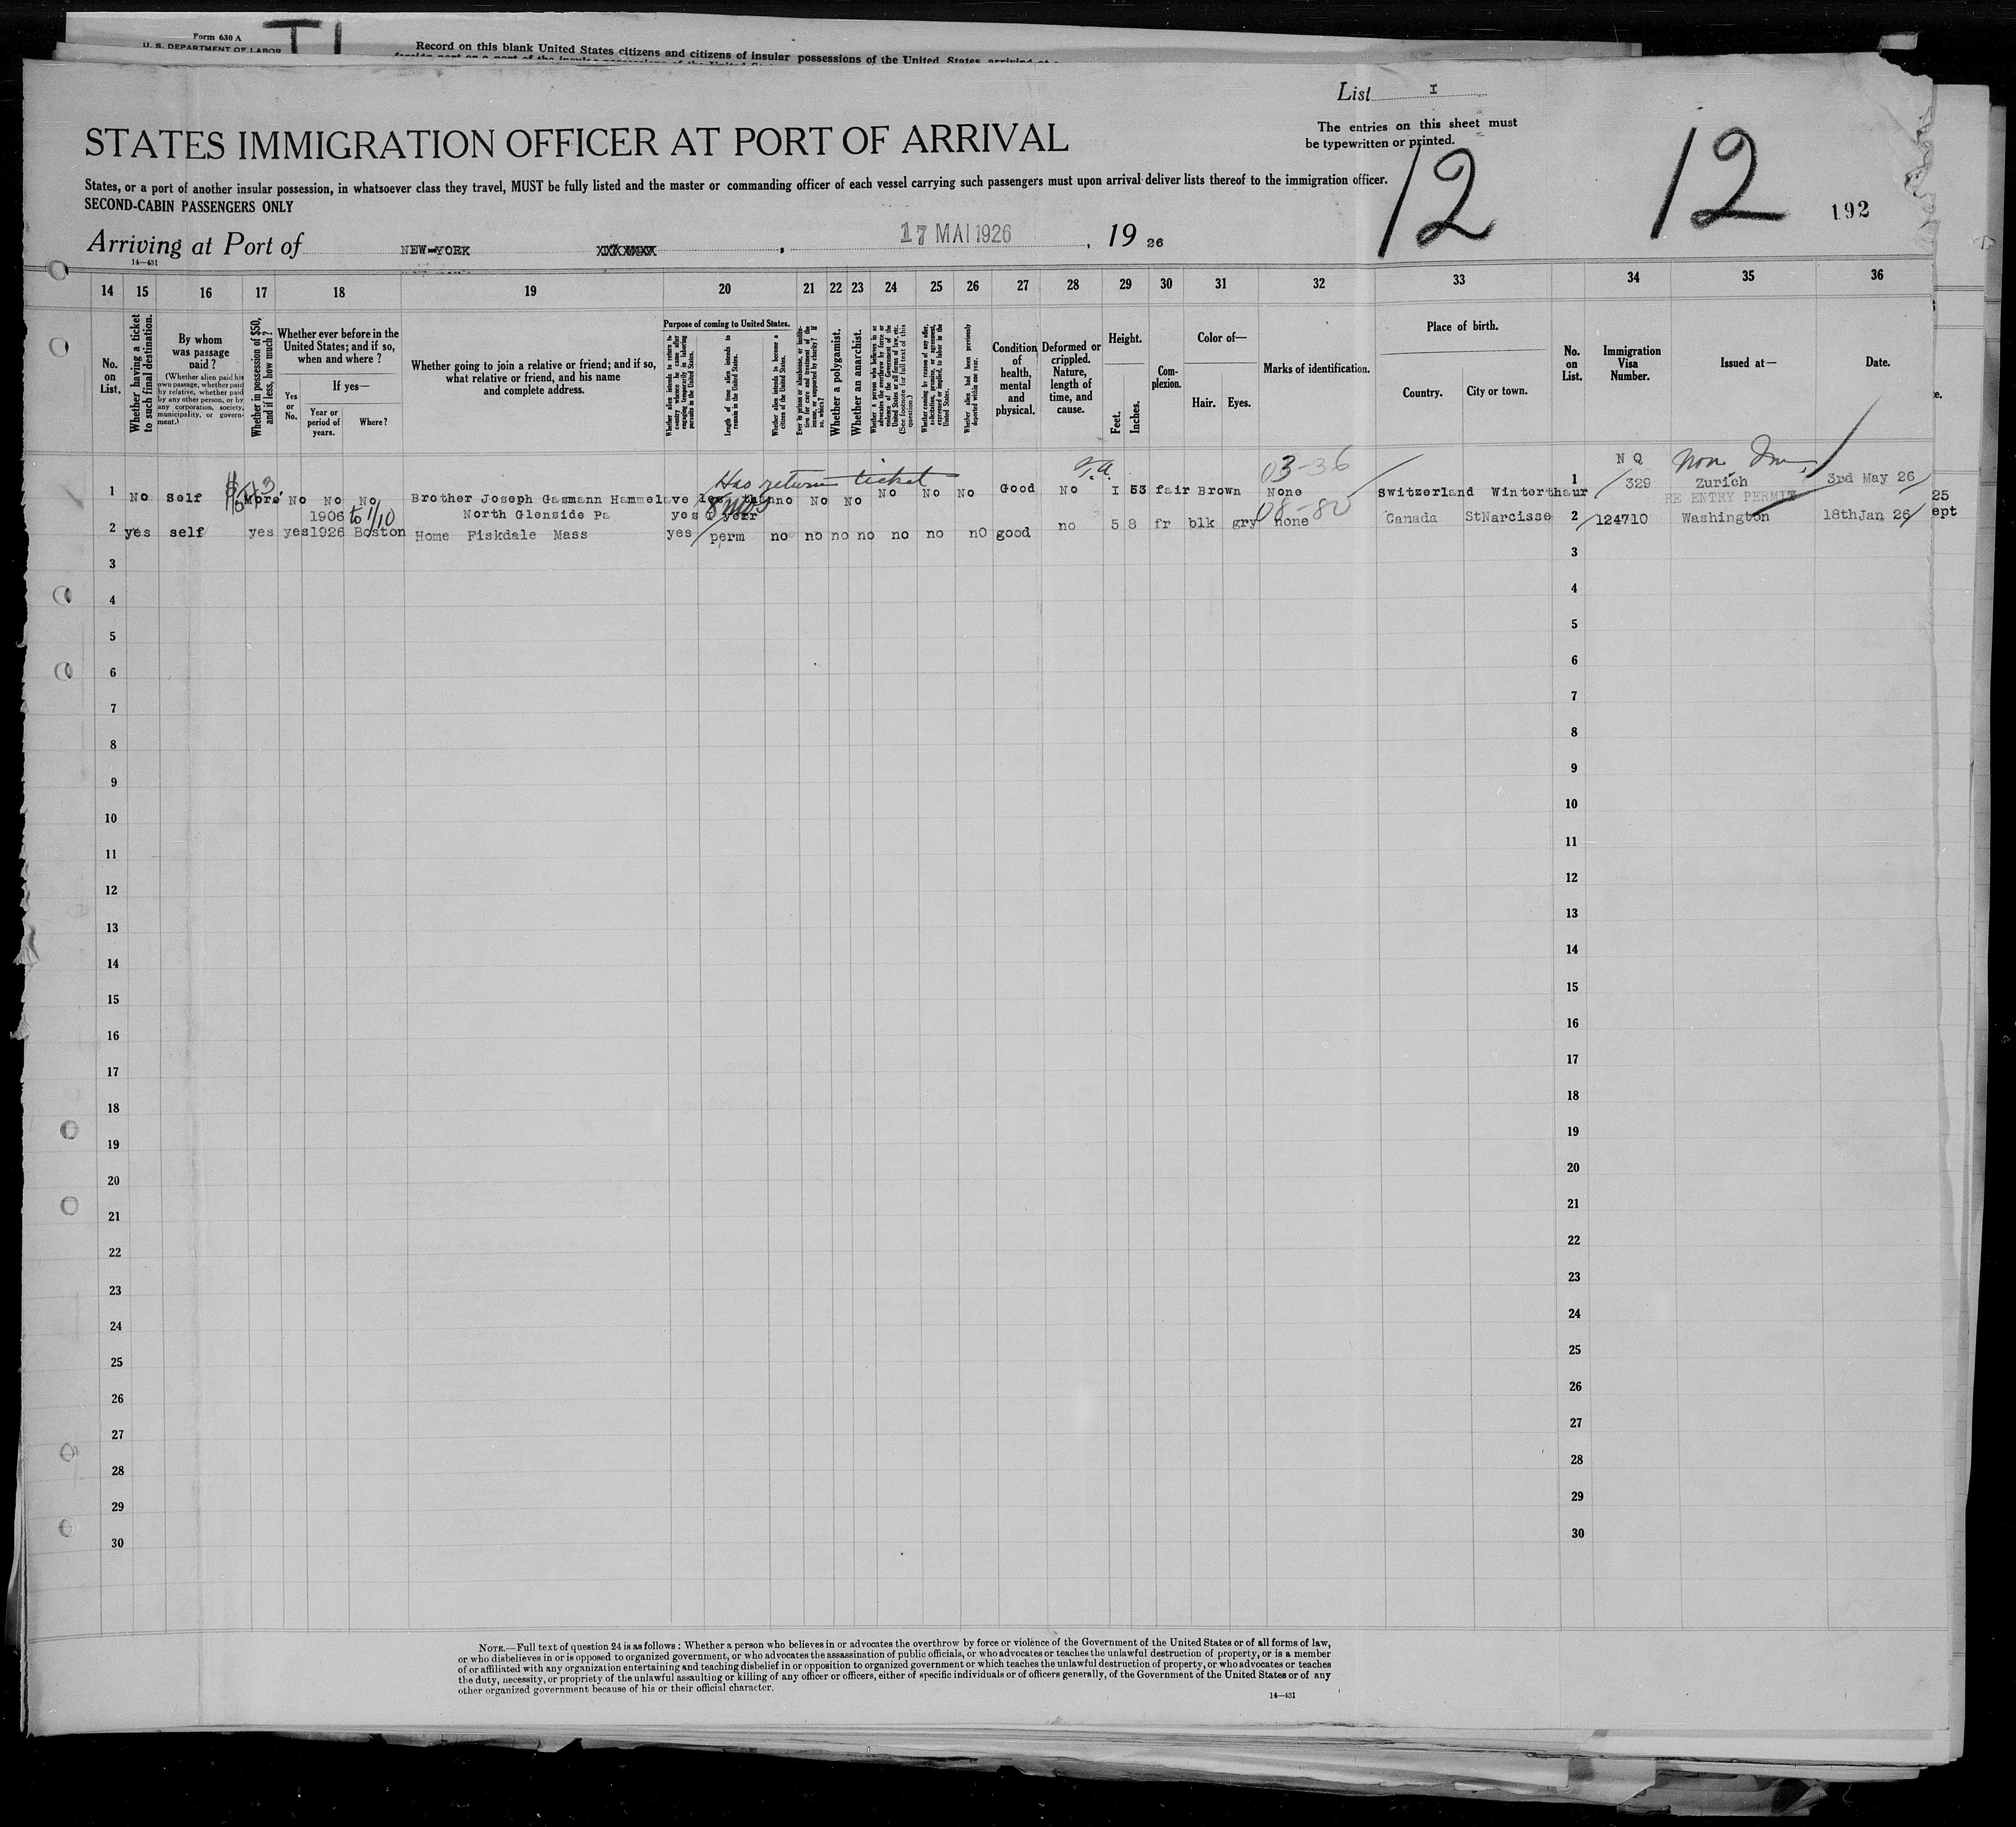 Form 630 A
U. S. DEPARTMENT OF LABOR
Record on this blank United States citizens and citizens of insular possessions of the United States, arriving at a
List I
The entries on this sheet must
be typewritten or printed.
STATES IMMIGRATION OFFICER AT PORT OF ARRIVAL
12 12
States, or a port of another insular possession, in whatsoever class they travel, MUST be fully listed and the master or commanding officer of each vessel carrying such passengers must upon arrival deliver lists thereof to the immigration officer.
SECOND-CABIN PASSENGERS ONLY
192
Arriving at Port of NEW-YORK , 17 MAI 1926 , 19 26
14—431
14 15 16 17 18 19 20 21 22 23 24 25 26 27 28 29 30 31 32 33 34 35 36
No. on List.
Whether having a ticket to such final destination.
By whom was passage paid?
(Whether alien paid his own passage, whether paid by relative, whether paid by any other person, or by any corporation, society, municipality, or government.)
Whether in possession of $50, and if less, how much?
Whether ever before in the United States; and if so, when and where?
Yes or No.
If yes—
Year or period of years.
Where?
Whether going to join a relative or friend; and if so, what relative or friend, and his name and complete address.
Purpose of coming to United States.
Whether alien intends to return to country whence he came after engaging temporarily in laboring pursuits in the United States.
Length of time alien intends to remain in the United States.
Whether alien intends to become a citizen of the United States.
Ever in prison or almshouse, or institution for care and treatment of the insane, or supported by charity? If so, which?
Whether a polygamist.
Whether an anarchist.
Whether a person who believes in or advocates the overthrow by force or violence of the Government of the United States or all forms of law, etc. (See footnote for full text of this question.)
Whether coming by reason of any offer, solicitation, promise, or agreement, expressed or implied, to labor in the United States.
Whether alien had been previously deported within one year.
Condition of health, mental and physical.
Deformed or crippled. Nature, length of time, and cause.
Height.
Feet.
Inches.
Complexion.
Color of—
Hair.
Eyes.
Marks of identification.
Place of birth.
Country.
City or town.
No. on List.
Immigration Visa Number.
Issued at—
Date.
Has return ticket 03-36 N Q Non Im.
1 No Self More No No No Brother Joseph Gasmann Hammelave less than no No No No No No Good No I 53 fair Brown None Switzerland Winterthaur 1 329 Zurich 3rd May 26
1906 to 1/10 North Glenside Pa yes 1 yerr 8 mos 08-80 RE ENTRY PERMIT 25
2 yes self yes yes 1926 Boston Home Fiskdale Mass yes perm no no no no no no nO good no 5 8 fr blk gry none Canada StNarcisse 2 124710 Washington 18thJan 26 ept
3 3
4 4
5 5
6 6
7 7
8 8
9 9
10 10
11 11
12 12
13 13
14 14
15 15
16 16
17 17
18 18
19 19
20 20
21 21
22 22
23 23
24 24
25 25
26 26
27 27
28 28
29 29
30 30
NOTE.—Full text of question 24 is as follows: Whether a person who believes in or advocates the overthrow by force or violence of the Government of the United States or of all forms of law,
or who disbelieves in or is opposed to organized government, or who advocates the assassination of public officials, or who advocates or teaches the unlawful destruction of property, or is a member
of or affiliated with any organization entertaining and teaching disbelief in or opposition to organized government or which teaches the unlawful destruction of property, or who advocates or teaches
the duty, necessity, or propriety of the unlawful assaulting or killing of any officer or officers, either of specific individuals or of officers generally, of the Government of the United States or of any
other organized government because of his or their official character.
14—431